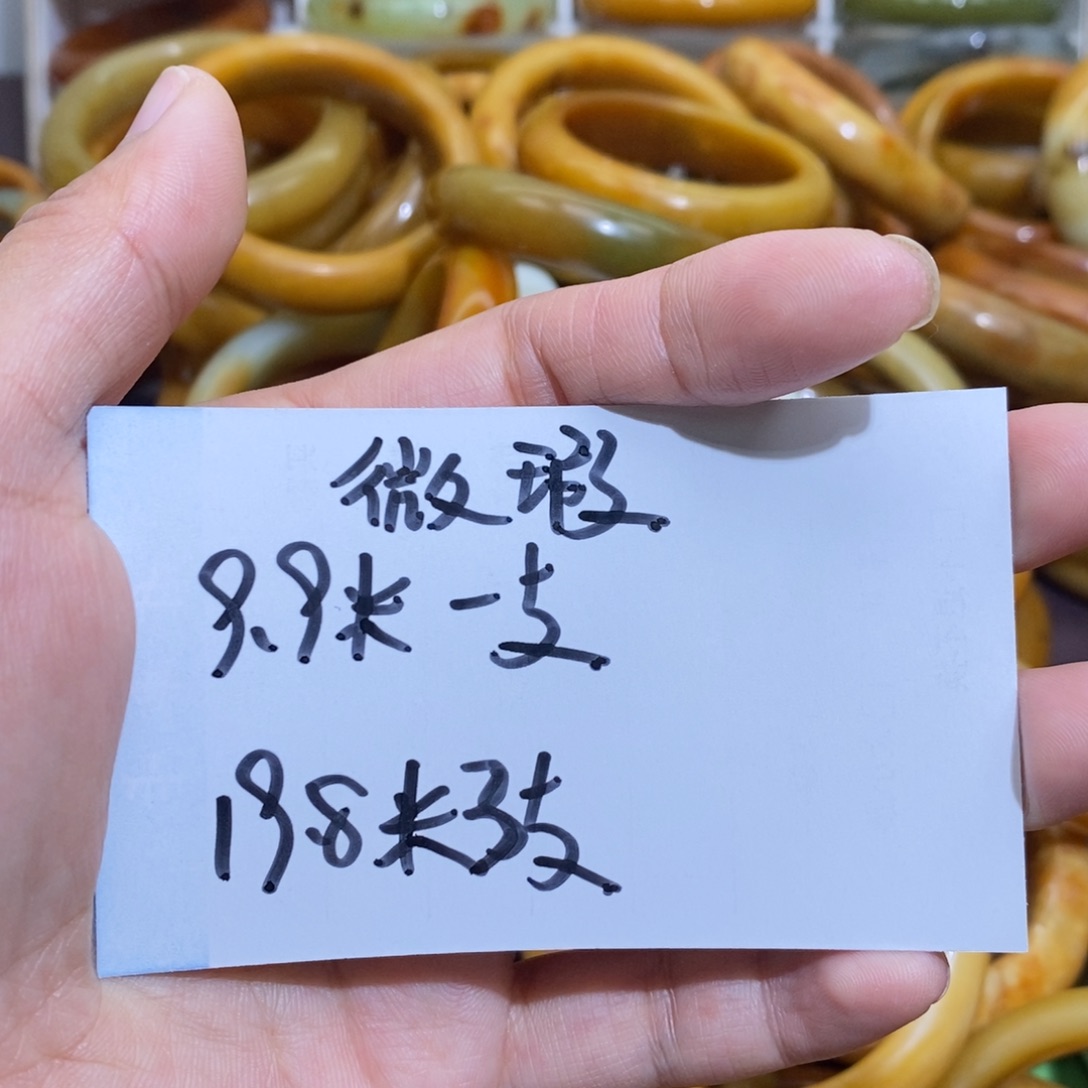 微瑕
9.9米一支
19.8米3支